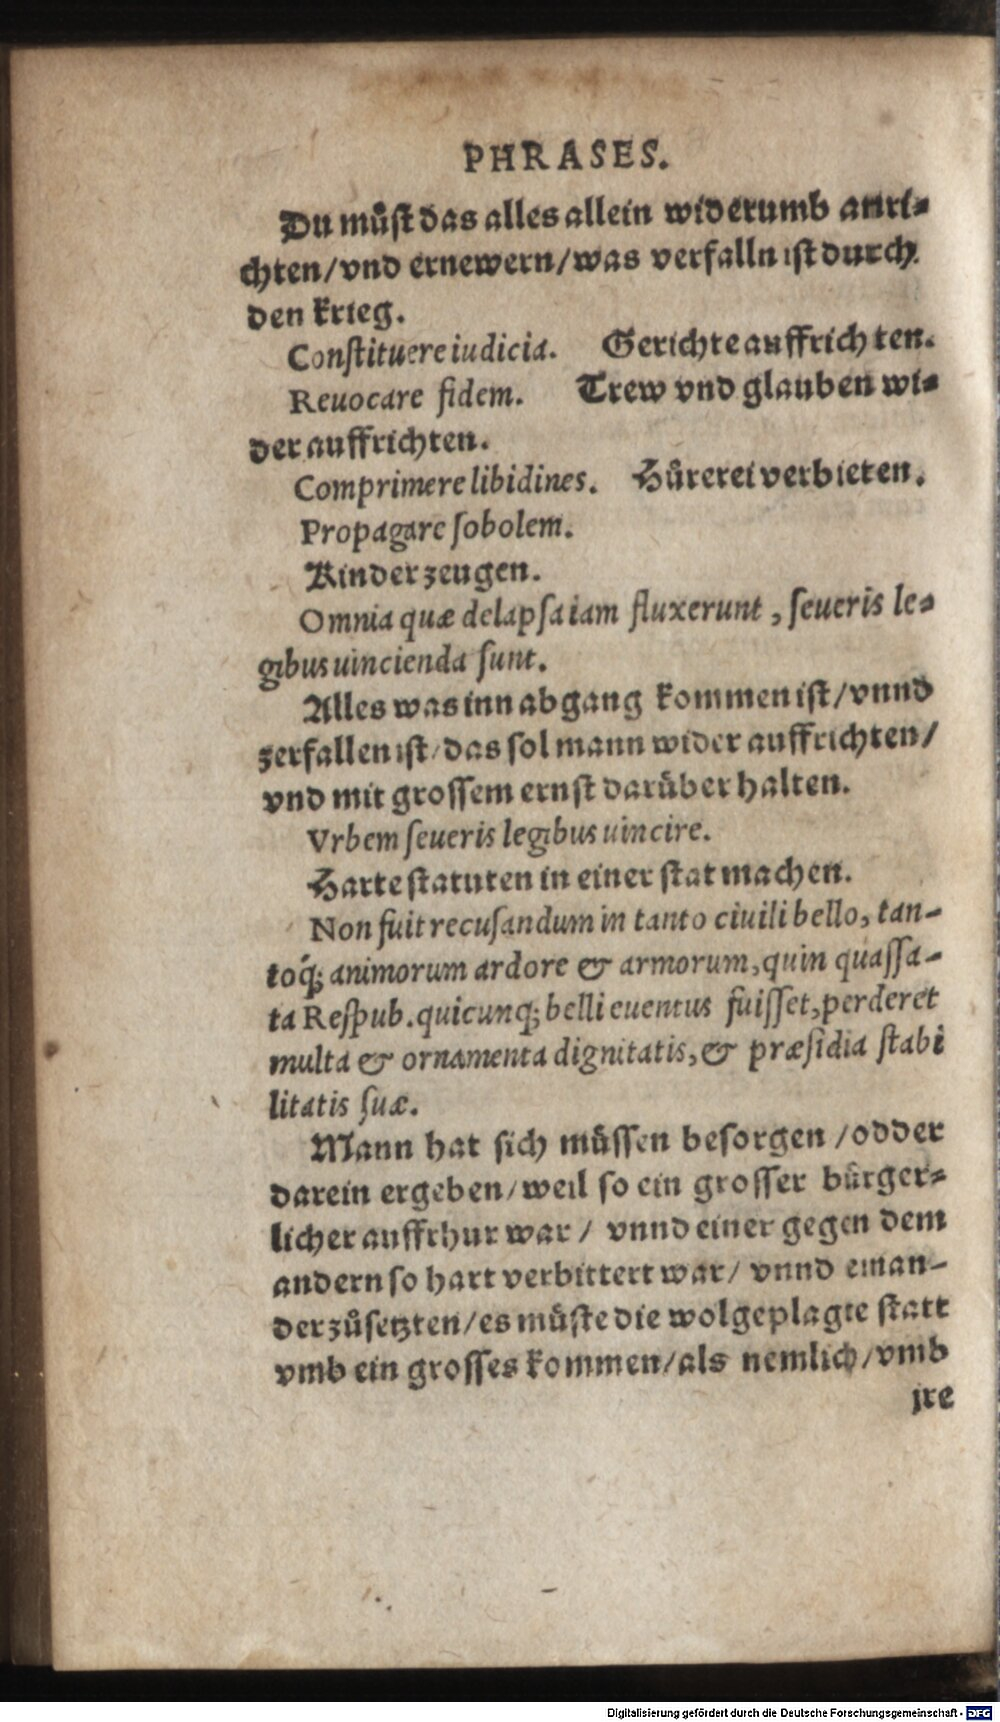 PHRASES.
Du můst das alles allein widerumb anri⸗
chten/vnd ernewern/was verfalln ist durch
den krieg.
Constituere iudicia. Gerichte auffrichten.
Reuocare fidem. Trew vnd glauben wi⸗
der auffrichten.
Comprimere libidines. Hůrerei verbieten.
Propagare ſobolem.
Kinder zeugen.
Omnia quæ delapſa iam fluxerunt, ſeueris le⸗
gibus uincienda ſunt.
Alles was inn abgang kommen ist/vnnd
zerfallen ist/das sol mann wider auffrichten/
vnd mit grossem ernst darüber halten.
Vrbem ſeueris legibus uincire.
Harte statuten in einer stat machen.
Non fuit recuſandum in tanto ciuili bello, tan-
toq́; animorum ardore & armorum, quin quaſſa-
ta Reſpub. quicunq; belli euentus fuiſſet, perderet
multa & ornamenta dignitatis, & præſidia ſtabi
litatis ſuæ.
Mann hat sich müssen besorgen/odder
darein ergeben/weil so ein grosser bürger⸗
licher auffrhur war/ vnnd einer gegen dem
andern so hart verbittert war/ vnnd einan-
der zůsetzten/es müste die wolgeplagte statt
vmb ein grosses kommen/als nemlich/vmb
jre
Digitalisierung gefördert durch die Deutsche Forschungsgemeinschaft - DFG